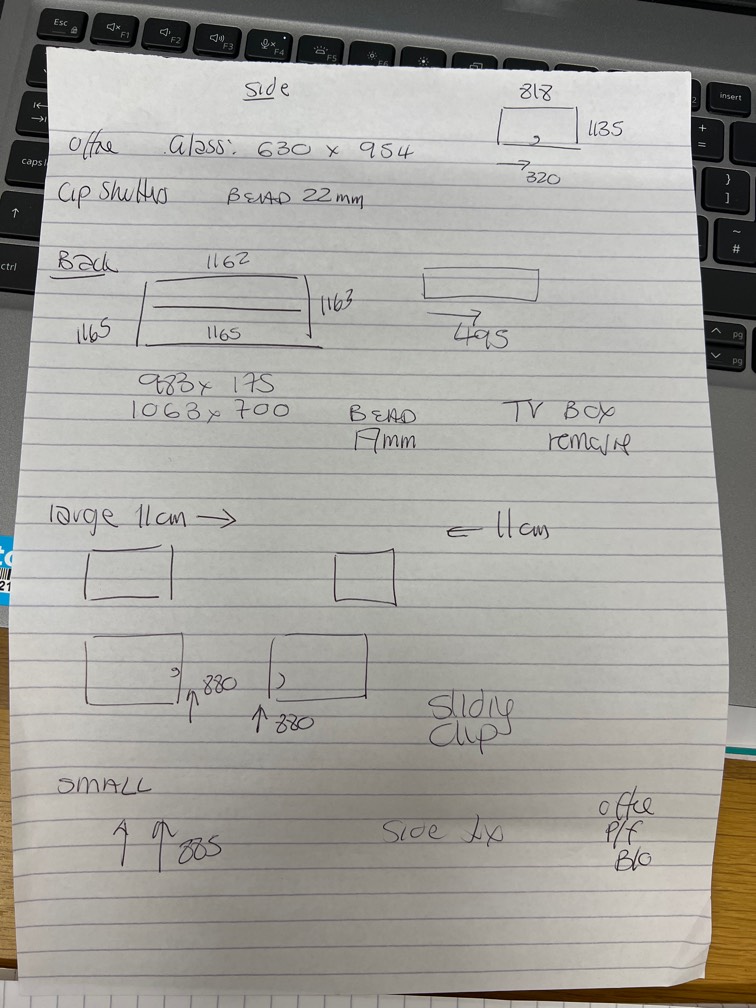 Side
818
1135
320
Office Glass: 630 x 954
Clip Shutters BEAD 22mm
Back
1162
1163
1165
1165
495
983 x 175
1063 x 700
BEAD
17mm
TV BOX
remove
large 11cm →
← 11cm
↑ 880
↑ 880
Sliding
Clip
SMALL
↑ ↑ 885
Side
office
P/f
B/O
Esc
F1
F2
F3
F4
F5
insert
caps
ctrl
pg
pg
21